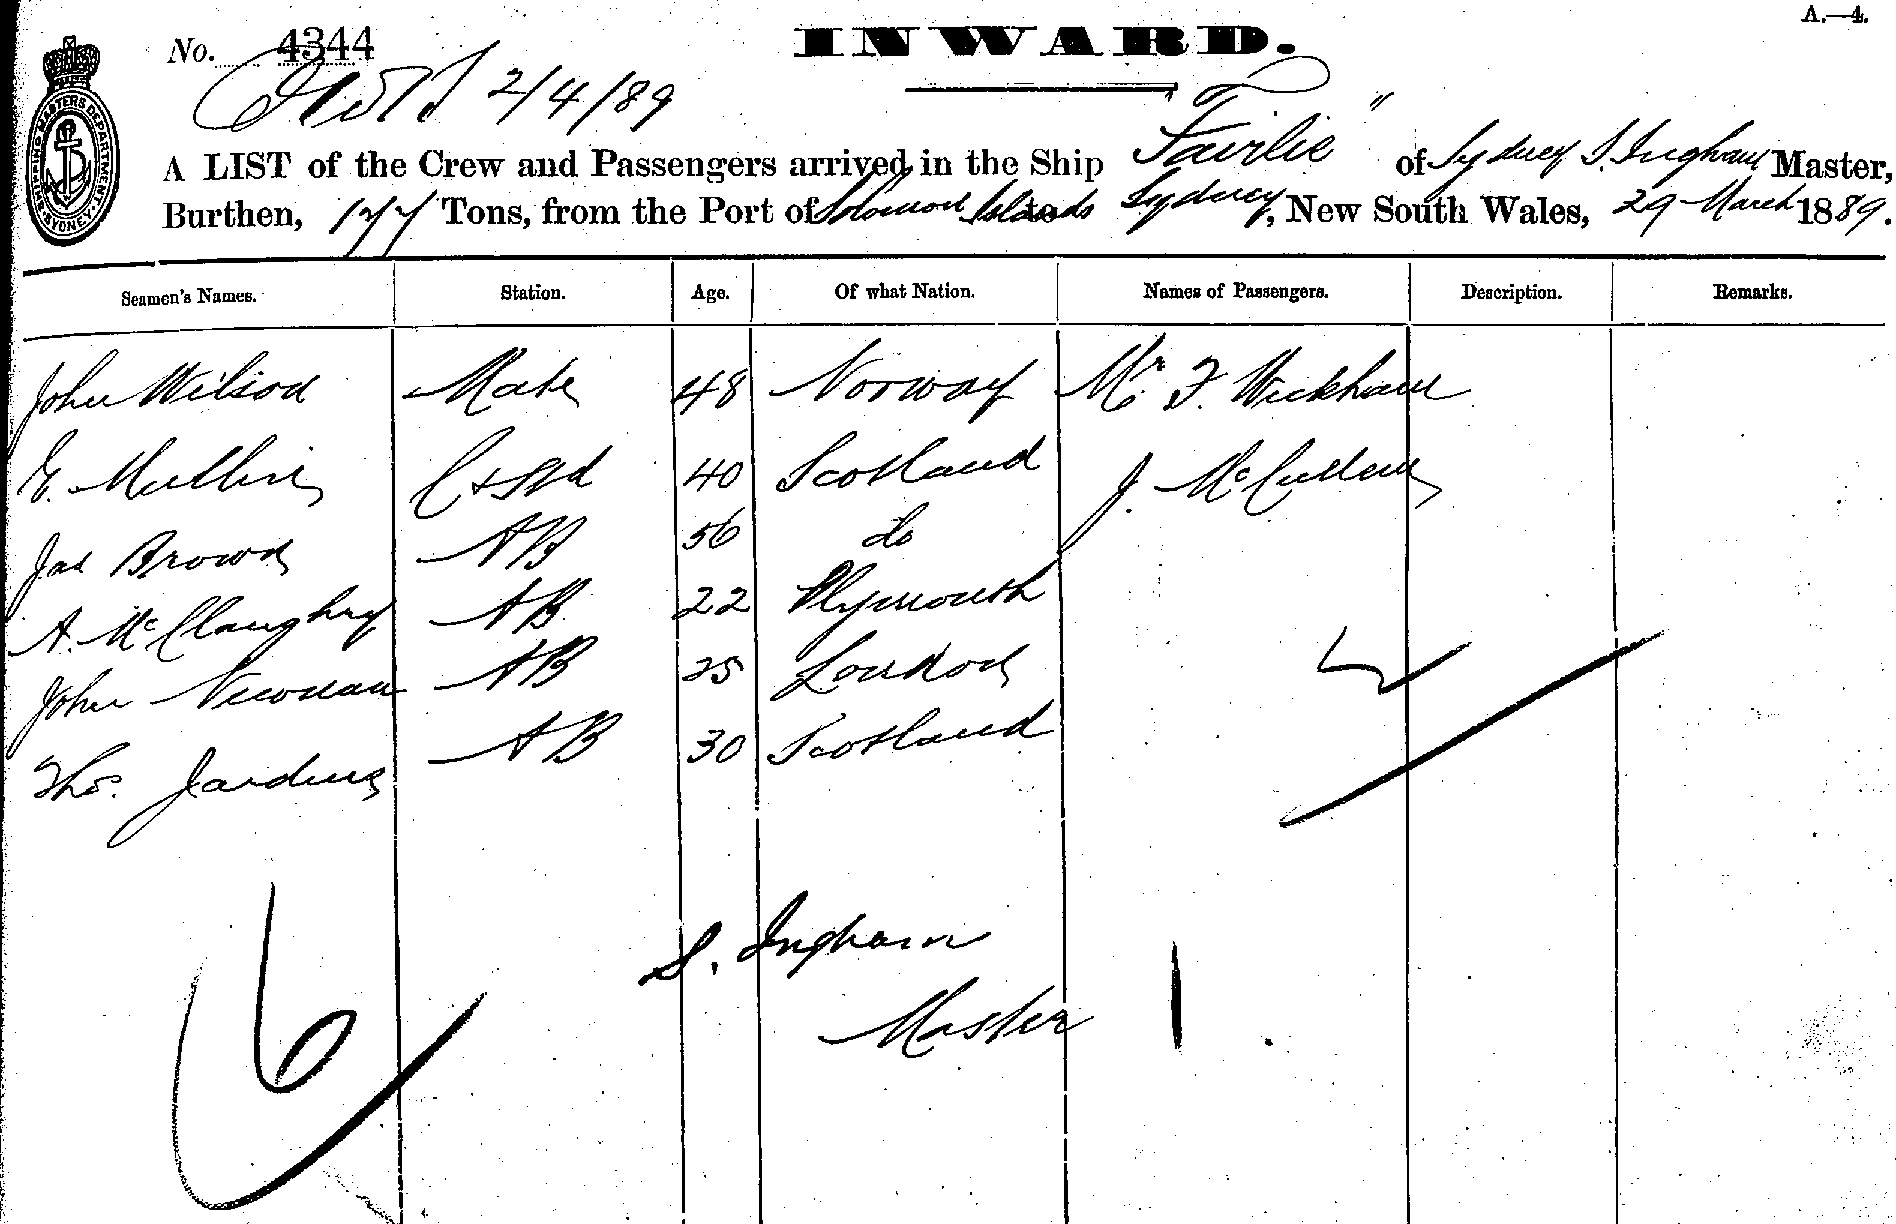 A.—4.
No. 4344 INWARD.
2/4/89
A LIST of the Crew and Passengers arrived in the Ship Fairlie" of Sydney S. Ingham Master,
Burthen, 177 Tons, from the Port of Solomon Islands to Sydney, New South Wales, 29 March 1889.
Seamen's Names. Station. Age. Of what Nation. Names of Passengers. Description. Remarks.
John Wilson Mate 48 Norway Mr. F. Wickham
E. Mullin C & Std 40 Scotland J. McCullum
Jas Brown AB 56 do
A. McClaughry AB 22 Plymouth
John Newman AB 25 London
Thos. Jardine AB 30 Scotland
2
6
S. Ingham
Master
SHIPPING MASTERS DEPARTMENT SYDNEY